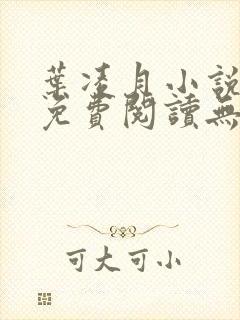 葉淩月小說
免費閱讀無
可大可小